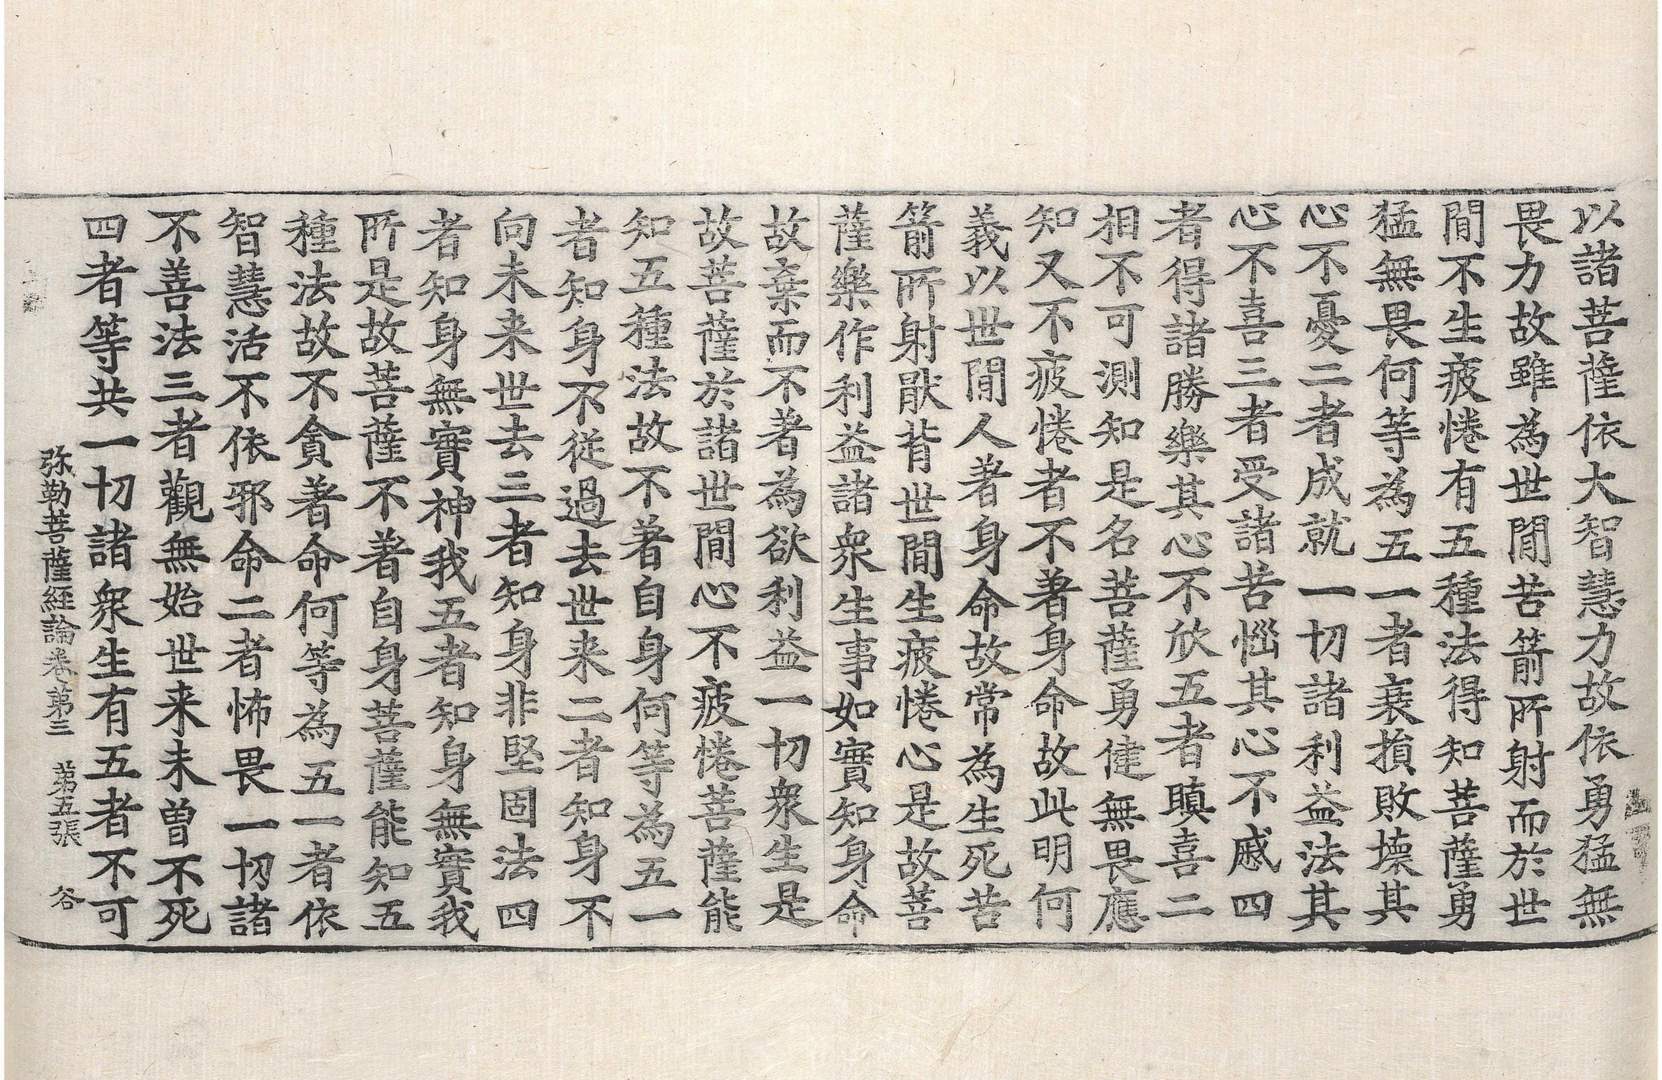 以諸菩薩依大智慧力故依勇猛無
畏力故雖為世間苦箭所射而於世
間不生疲惓有五種法得知菩薩勇
猛無畏何等為五一者衰損敗壞其
心不憂二者成就一切諸利益法其
心不喜三者受諸苦惱其心不慼四
者得諸勝樂其心不欣五者瞋喜二
相不可測知是名菩薩勇健無畏應
知又不疲惓者不著身命故此明何
義以世間人著身命故常為生死苦
箭所射猒背世間生疲惓心是故菩
薩樂作利益諸衆生事如實知身命
故棄而不著為欲利益一切衆生是
故菩薩於諸世間心不疲惓菩薩能
知五種法故不著自身何等為五一
者知身不從過去世来二者知身不
向未来世去三者知身非堅固法四
者知身無實神我五者知身無實我
所是故菩薩不著自身菩薩能知五
種法故不貪著命何等為五一者依
智慧活不依邪命二者怖畏一切諸
不善法三者觀無始世来未曾不死
四者等共一切諸衆生有五者不可
弥勒菩薩經論卷第三 第五張 谷